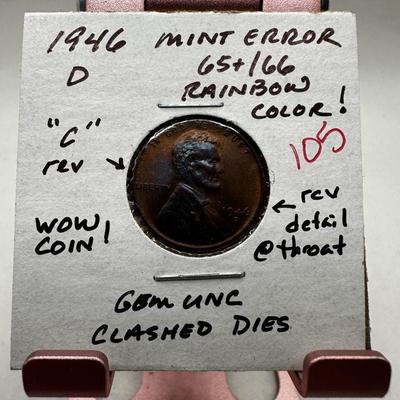 1946 MINT ERROR
D 65+/66
RAINBOW
COLOR!
105
"C"
rev
LIBERTY
1946
WOW
COIN!
rev
detail
@throat
GEM UNC
CLASHED DIES